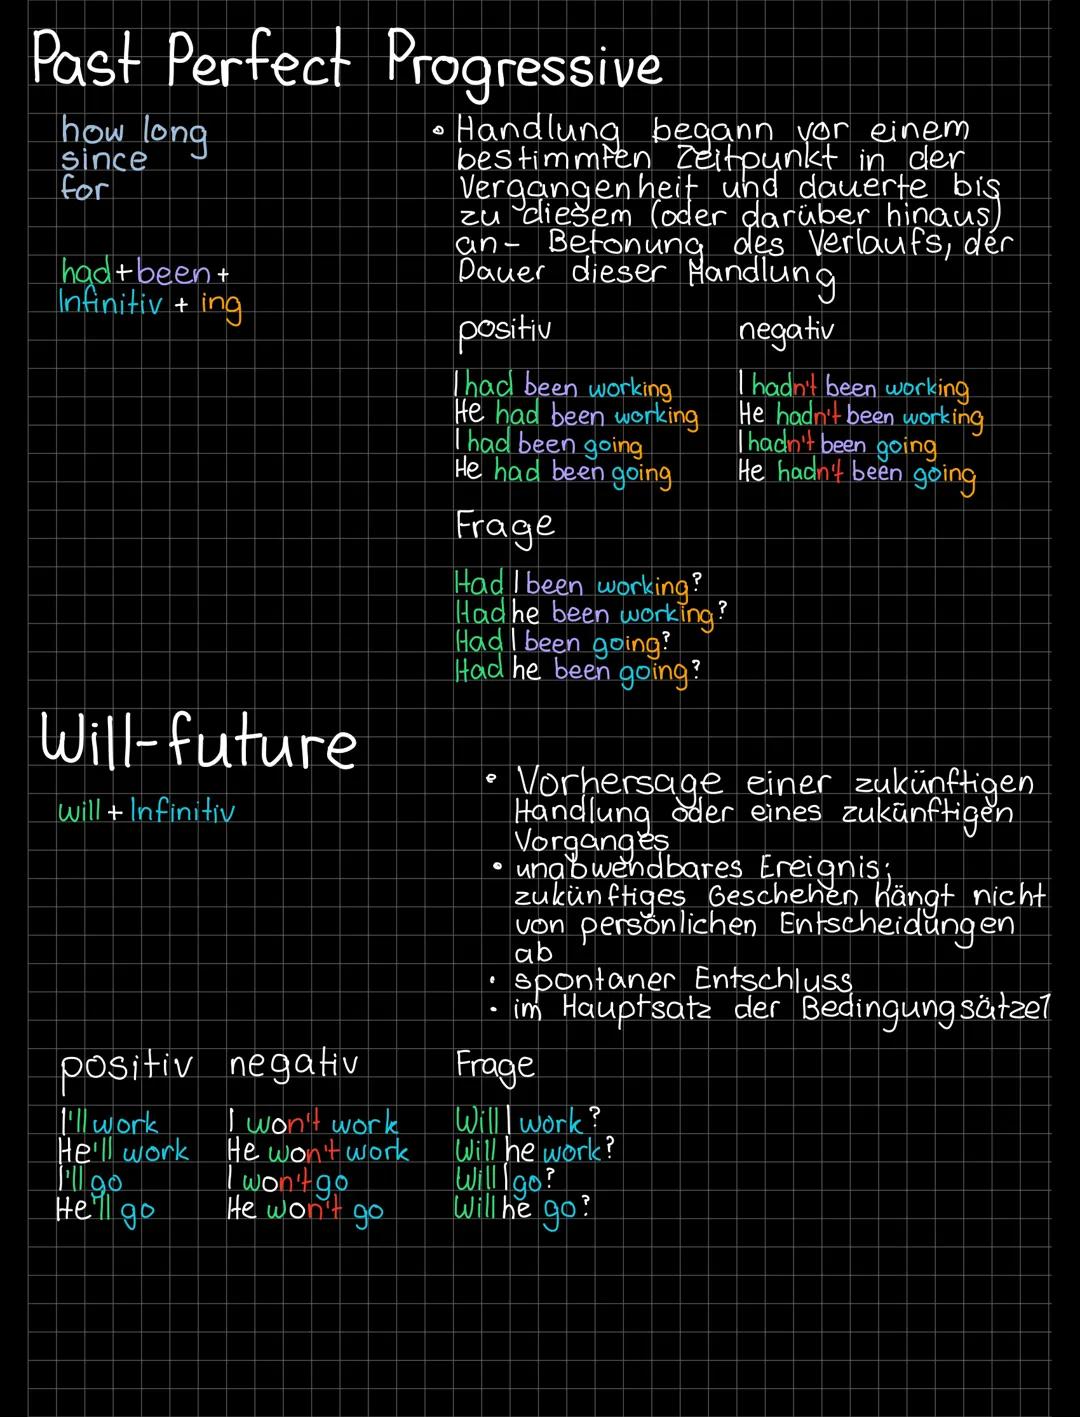 Past Perfect Progressive
how long
since
for
had+been+
Infinitiv + ing
• Handlung begann vor einem
bestimmten Zeitpunkt in der
Vergangenheit und dauerte bis
zu diesem (oder darüber hinaus)
an- Betonung des Verlaufs, der
Dauer dieser Handlung
positiv negativ
I had been working I hadn't been working
He had been working He hadn't been working
I had been going I hadn't been going
He had been going He hadn't been going
Frage
Had I been working?
Had he been working?
Had I been going?
Had he been going?
Will-future
will + Infinitiv
• Vorhersage einer zukünftigen
Handlung oder eines zukünftigen
Vorganges
• unabwendbares Ereignis;
zukünftiges Geschehen hängt nicht
von persönlichen Entscheidungen
ab
• spontaner Entschluss
• im Hauptsatz der Bedingungsätze1
positiv negativ Frage
I'll work I won't work Will I work?
He'll work He won't work Will he work?
I'll go I won't go Will I go?
He'll go He won't go Will he go?